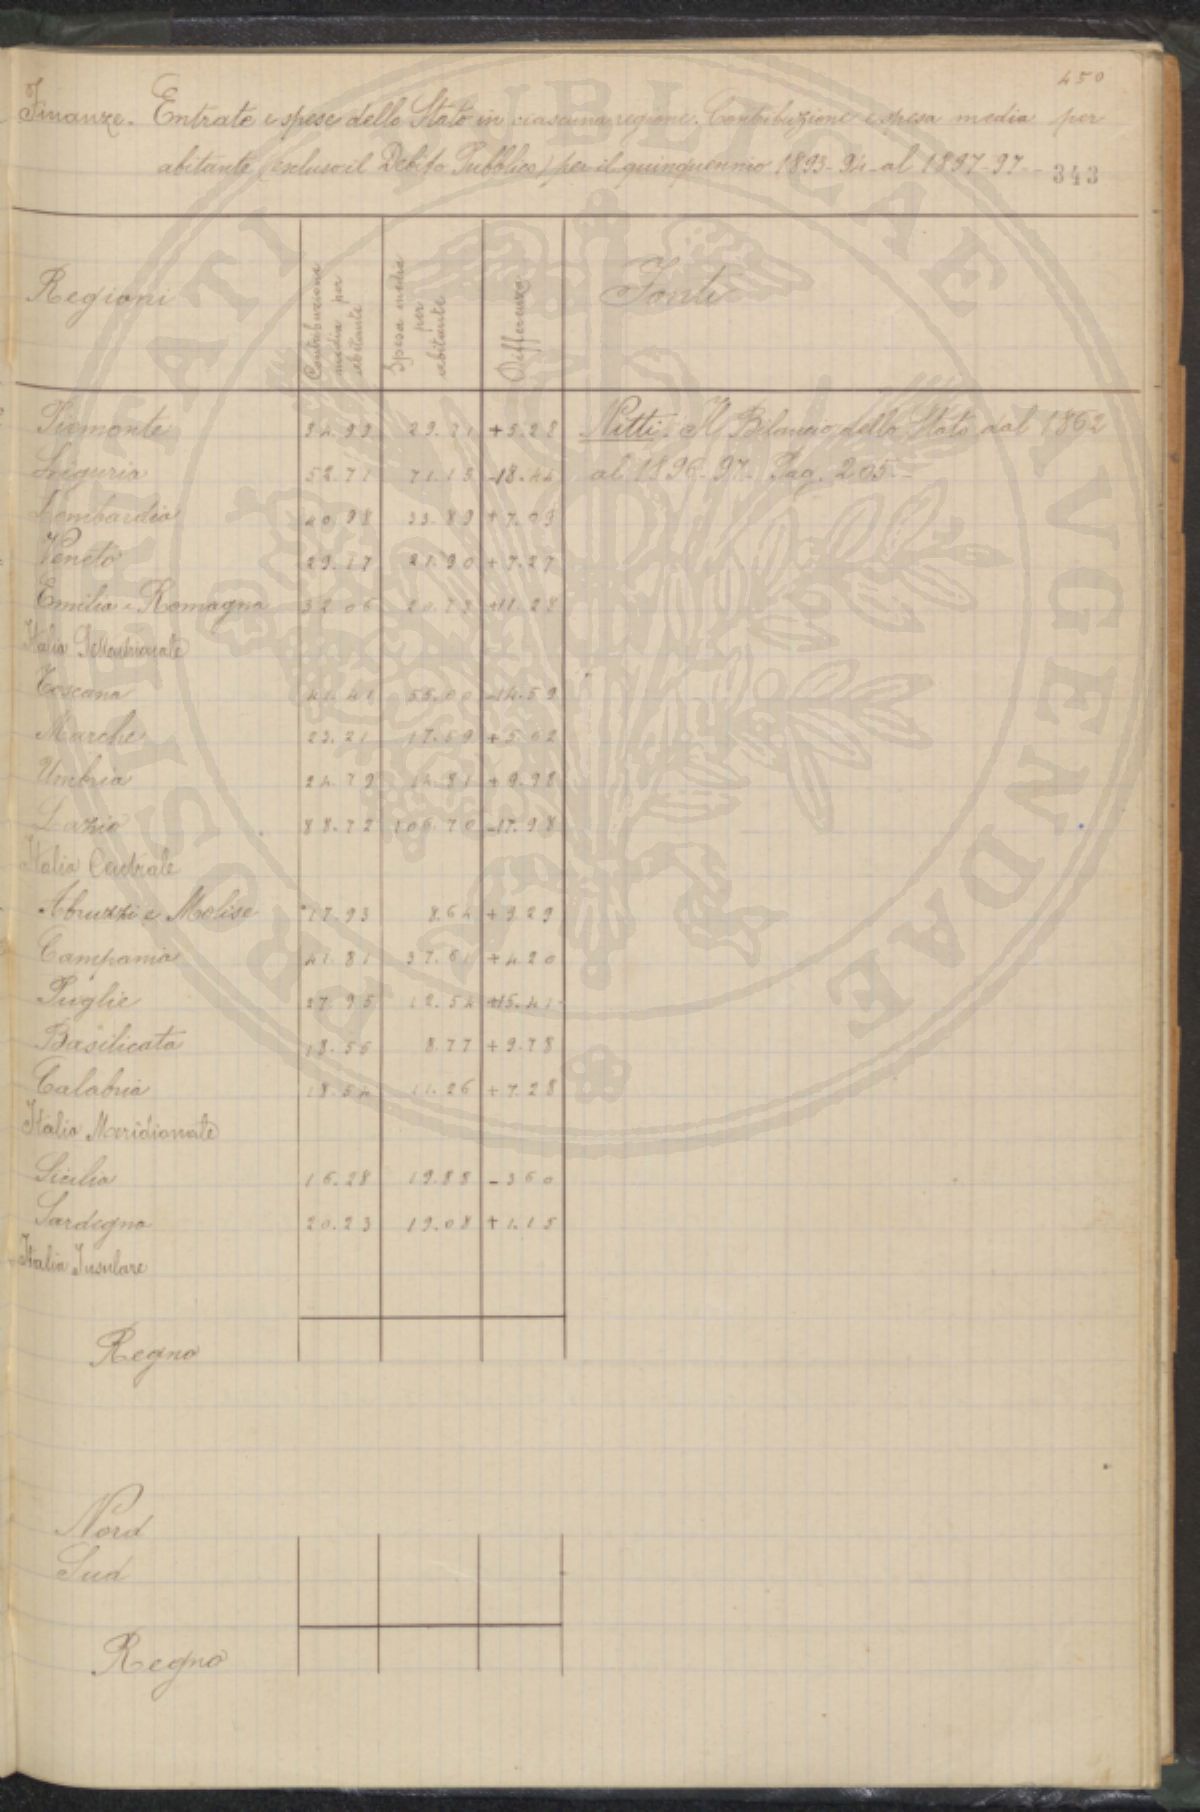 450
Finanze. Entrate e spese dello Stato in ciascuna regione. Contribuzione e spesa media per
abitante (escluso il Debito Pubblico) per il quinquennio 1893-94 al 1897-97 -- 343
Regioni Contribuzione media per abitante Spesa media per abitante Differenza Fonti
Piemonte 34.99 29.71 +5.28 Nitti. Il Bilancio dello Stato dal 1862
Liguria 52.71 71.15 -18.44 al 1896-97. Pag. 205.-
Lombardia 40.98 33.89 +7.09
Veneto 29.17 21.90 +7.27
Emilia e Romagna 32.06 20.78 +11.28
Italia Settentrionale
Toscana 41.41 56.00 -14.59
Marche 23.21 17.59 +5.62
Umbria 24.79 14.81 +9.98
Lazio 88.72 106.70 -17.98
Italia Centrale
Abruzzi e Molise 17.93 8.64 +9.29
Campania 41.81 37.61 +4.20
Puglie 27.95 12.54 +15.41
Basilicata 18.55 8.77 +9.78
Calabria 18.54 11.26 +7.28
Italia Meridionale
Sicilia 16.28 19.88 -3.60
Sardegna 20.23 19.08 +1.15
Italia Insulare
Regno
Nord
Sud
Regno
PROSPERITATI PUBLICAE AVGENDAE